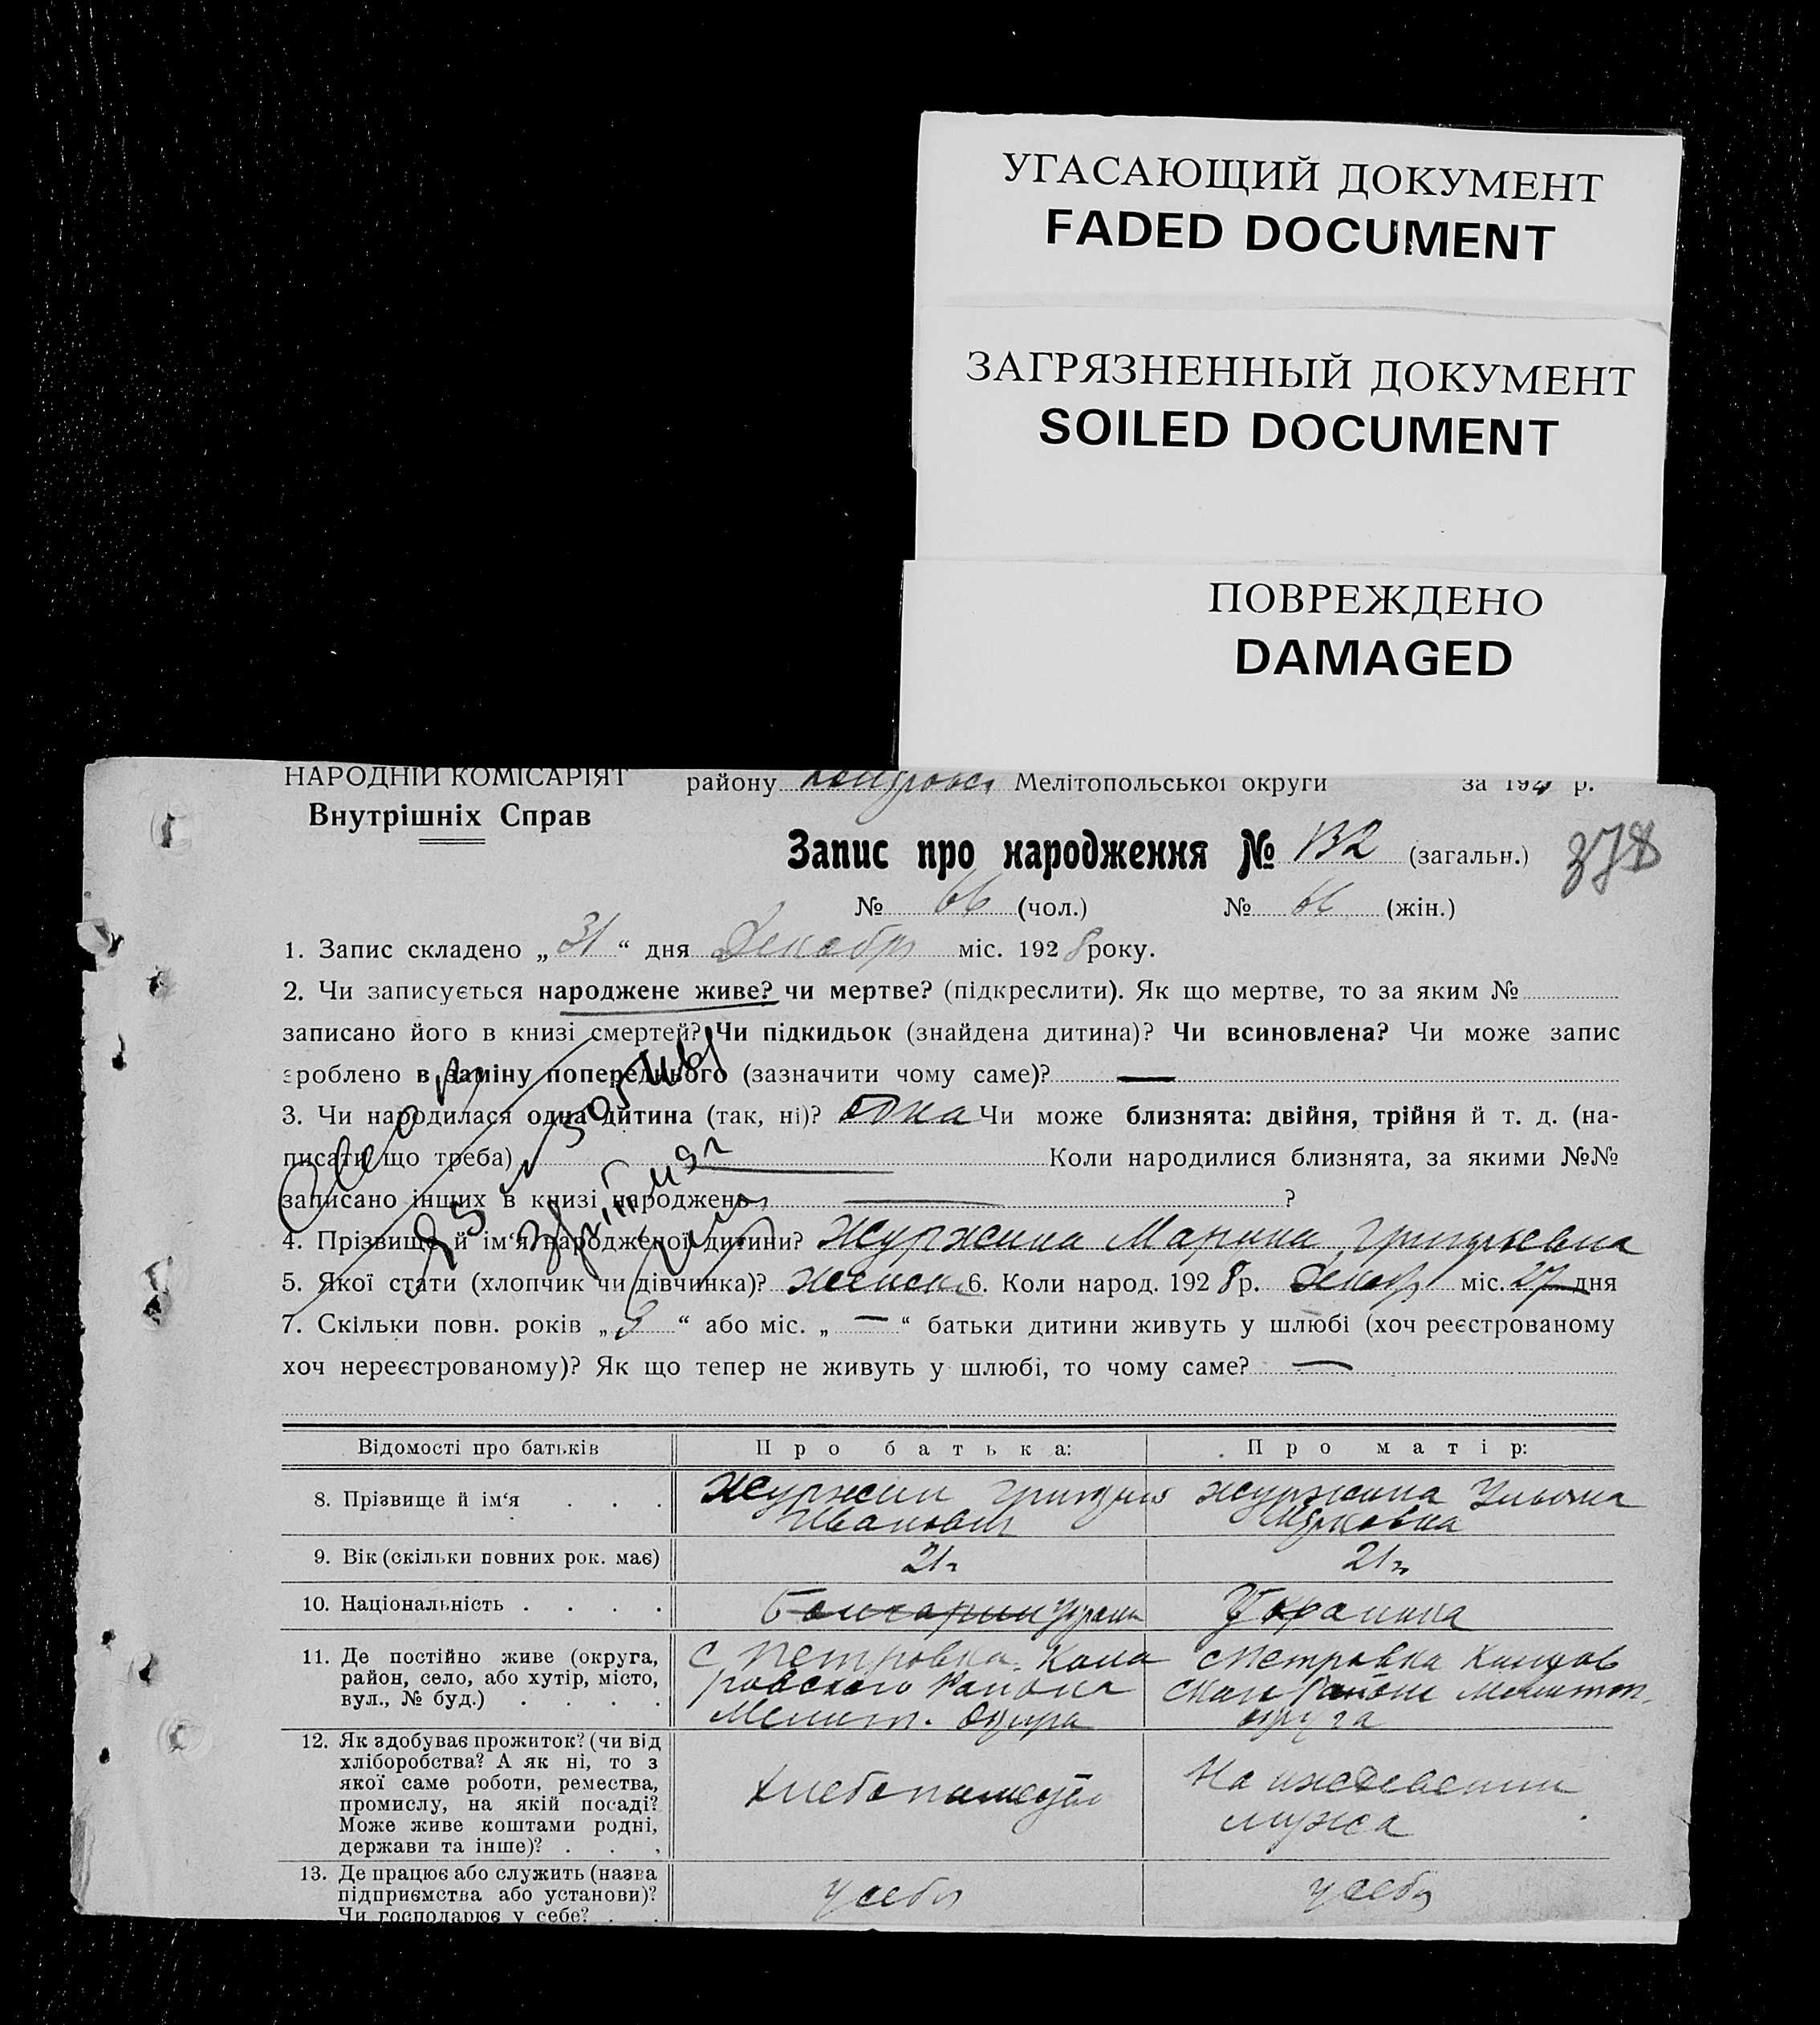 УГАСАЮЩИЙ ДОКУМЕНТ
FADED DOCUMENT
ЗАГРЯЗНЕННЫЙ ДОКУМЕНТ
SOILED DOCUMENT
ПОВРЕЖДЕНО
DAMAGED
НАРОДНІЙ КОМІСАРІЯТ
району Мелітопольської округи за 192 р.
Внутрішніх Справ
Запис про народження № 132 (загальн.) 378
№ 66 (чол.) № 66 (жін.)
1. Запис складено „ 31 “ дня Декабря міс. 1928 року.
2. Чи записується народжене живе? чи мертве? (підкреслити). Як що мертве, то за яким №
записано його в книзі смертей? Чи підкидьок (знайдена дитина)? Чи всиновлена? Чи може запис
зроблено в заміну попереднього (зазначити чому саме)? —
3. Чи народилася одна дитина (так, ні)? одна Чи може близнята: двійня, трійня й т. д. (на-
писати що треба) Коли народилися близнята, за якими №№
записано інших в книзі народжень ?
4. Прізвище й ім‘я народженої дитини? Журжина Марина Григорьевна
5. Якої стати (хлопчик чи дівчинка)? женск 6. Коли народ. 1928 р. Декабр міс. 27 дня
7. Скільки повн. років „ 3 “ або міс. „ — “ батьки дитини живуть у шлюбі (хоч реєстрованому
хоч нереєстрованому)? Як що тепер не живуть у шлюбі, то чому саме? —
Відомості про батьків Про батька: Про матір:
8. Прізвище й ім‘я . . . Журжин Григорий Журжина Ульяна
Иванович Марковна
9. Вік (скільки повних рок. має) 21 г. 21 г.
10. Національність . . . . Болгарин Украин Украинка
11. Де постійно живе (округа, район, село, або хутір, місто, вул., № буд.) . . . .
с Петровка Кола
ровского Района
Мелит. Округа
с Петровка
район Мелитоп.
округа
12. Як здобуває прожиток? (чи від хліборобства? А як ні, то з якої саме роботи, ремества, промислу, на якій посаді? Може живе коштами родні, держави та інше)? . . .
Хлебопашеством
На иждевении
мужа
13. Де працює або служить (назва підприємства або установи)? Чи господарює у себе? . .
у себя
у себя